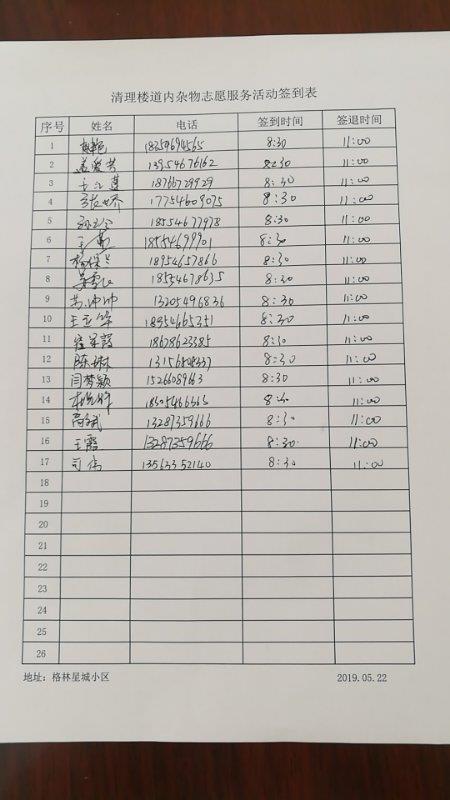 清理楼道内杂物志愿服务活动签到表
序号 姓名 电话 签到时间 签退时间
1 8:30 11:00
2 孟爱芳 13954676162 8:30 11:00
3 18766729929 8:30 11:00
4 17754609075 8:30 11:00
5 18554677978 8:30 11:00
6 18554679901 8:30 11:00
7 18954657866 8:30 11:00
8 18554678635 8:30 11:00
9 13205496836 8:30 11:00
10 王亚华 18954665351 8:30 11:00
11 18678623385 8:30 11:00
12 陈琳 8:30 11:00
13 闫梦颖 8:30 11:00
14 8:30 11:00
15 高斌 13287359666 8:30 11:00
16 王霞 13287359666 8:30 11:00
17 司伟 13563352140 8:30 11:00
18
19
20
21
22
23
24
25
26
地址：格林星城小区 2019.05.22